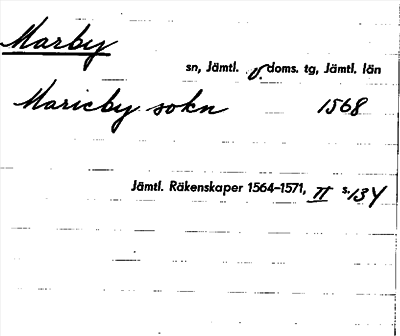 Marby
sn, Jämtl. v. doms. tg, Jämtl. län
Maricby sokn 1568
Jämtl. Räkenskaper 1564-1571, II s.